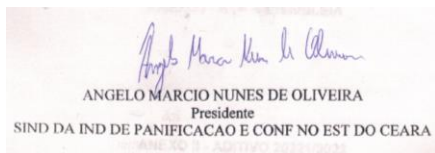 Angelo Marcio Nunes de Oliveira
ANGELO MARCIO NUNES DE OLIVEIRA
Presidente
SIND DA IND DE PANIFICACAO E CONF NO EST DO CEARA